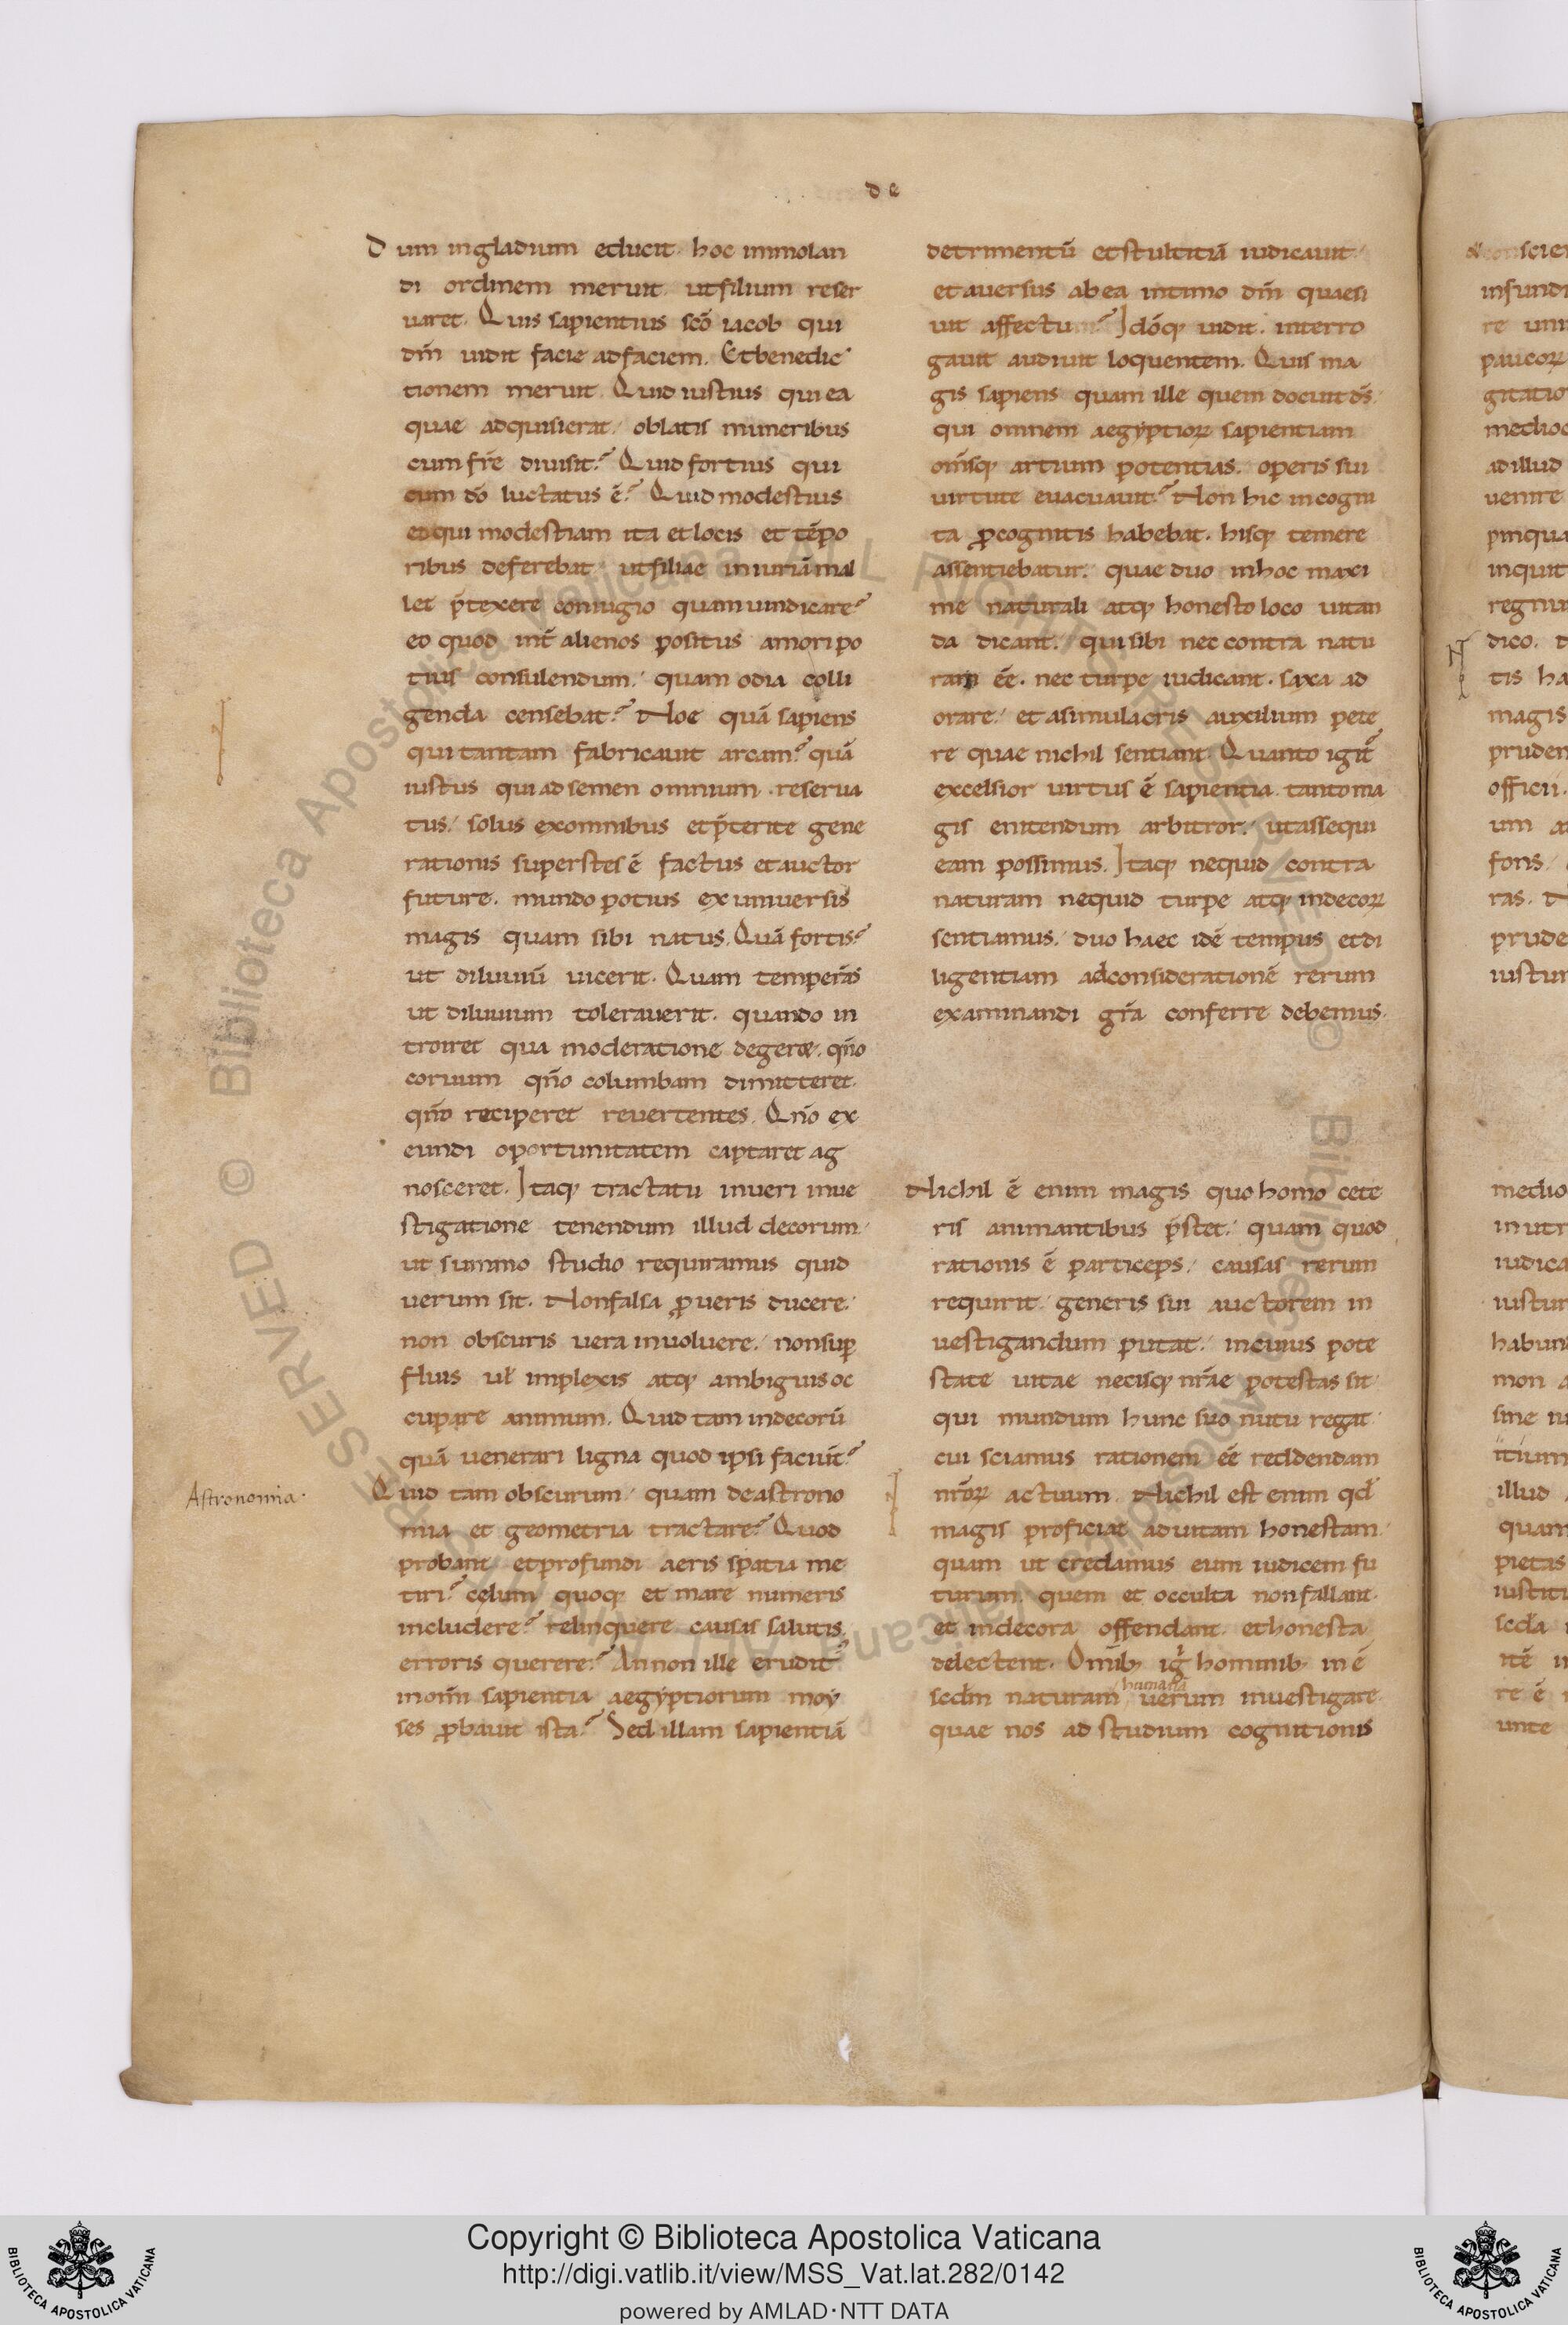 de
Dum ingladium educit. hoc immolan
di ordinem meruit. utfilium reser
uaret. Quis sapientius scō iacob qui
dm̄ uidit facie adfaciem. Etbenedic
tionem meruit. Quid iustius qui ea
quae adquisierat oblatis muneribus
cum fr̄e diuisit? Quid fortius qui
cum dō luctatus ē? Quid modestius
eo qui modestiam ita et locis et tēpo
ribus deferebat utfiliae iniuriā mal
let p̄texere coniugio quam uindicare?
eo quod int̄ alienos positus amori po
tius consulendum. quam odia colli
genda censebat? Noe quā sapiens
qui tantam fabricauit arcam? quā
iustus qui ad semen omnium reserua
tus. solus exomnibus et p̄terite gene
rationis superstes ē factus et auctor
future. mundo potius ex uniuersis
magis quam sibi natus. Quā fortis?
ut diluuiū uicerit. Quam temperās
ut diluuium tolerauerit. quando in
troiret qua moderatione degeret. qn̄o
coruum qn̄o columbam dimitteret.
qn̄o reciperet reuertentes. Qn̄o ex
eundi oportunitatem captaret ag
nosceret. Itaq; tractatu inueri inue
stigatione tenendum illud decorum.
ut summo studio requiramus quid
uerum sit. Nonfalsa ꝓ ueris ducere.
non obscuris uera inuoluere. nonsuꝑ
fluis ul̄ implexis atq; ambiguis oc
cupare animum. Quid tam indecorū
quā uenerari ligna quod ipsi faciūt?
Astronomia.
Quid tam obscurum quam deastrono
mia et geometria tractare? Quod
probant etprofundi aeris spatia me
tiri? cęlum quoq; et mare numeris
includere? relinquere causas salutis.
erroris querere? An non ille erudit'
in om̄i sapientia aegyptiorum moy
ses ꝓbauit ista? Sed illam sapientiā
detrimentū et stultitiā iudicauit.
et auersus ab ea intimo dm̄ quaesi
uit affectu? Idōq; uidit. interro
gauit audiuit loquentem. Quis ma
gis sapiens quam ille quem docuit ds̄.
qui omnem aegyptioꝝ sapientiam
om̄sq; artium potentias. operis sui
uirtute euacuauit? Non hic incogni
ta ꝓcognitis habebat. hisq; temere
assentiebatur. quae duo inhoc maxi
me naturali atq; honesto loco uitan
da dicant. qui sibi nec contra natu
ram ēe. nec turpe iudicant. saxa ad
orare. et asimulacris auxilium pete
re quae nichil sentiant. Quanto igit̄
excelsior uirtus ē sapientia. tanto ma
gis enitendum arbitror. utassequi
eam possimus. Itaq; nequid contra
naturam nequid turpe atq; indecoꝝ
sentiamus. duo haec idē tempus et di
ligentiam adconsiderationē rerum
examinandi gr̄a conferre debemus.
Nichil ē enim magis quo homo cete
ris animantibus p̄stet. quam quod
rationis ē particeps. causas rerum
requirit. generis sui auctorem in
uestigandum putat. incuius pote
state uitae necisq; nr̄ae potestas sit
qui mundum hunc suo nutu regat.
cui sciamus rationem ēe reddendam
nr̄oꝝ actuum. Nichil est enim qd̄
magis proficiat aduitam honestam.
quam ut credamus eum iudicem fu
turum. quem et occulta non fallant.
et indecora offendant. et honesta
delectent. Omīb; igr̄ hominib; in ē
humanā
scd̄m naturam uerum inuestigare.
quae nos ad studium cognitionis
infund
paucoꝝ
gitatio
medioc
ad illud
uenire
pinqua
inquit
regnu
dico.
tis ha
magis
pruden
officii.
foris
ras.
prude
iustu
medio
in utr
iudica
habun
mon
illud
quam
pietas
iustiti
re ē
Biblioteca Apostolica Vaticana ALL RIGHTS RESERVED ©
Copyright © Biblioteca Apostolica Vaticana
http://digi.vatlib.it/view/MSS_Vat.lat.282/0142
powered by AMLAD·NTT DATA
BIBLIOTECA APOSTOLICA VATICANA
BIBLIOTECA APOSTOLICA VATICANA